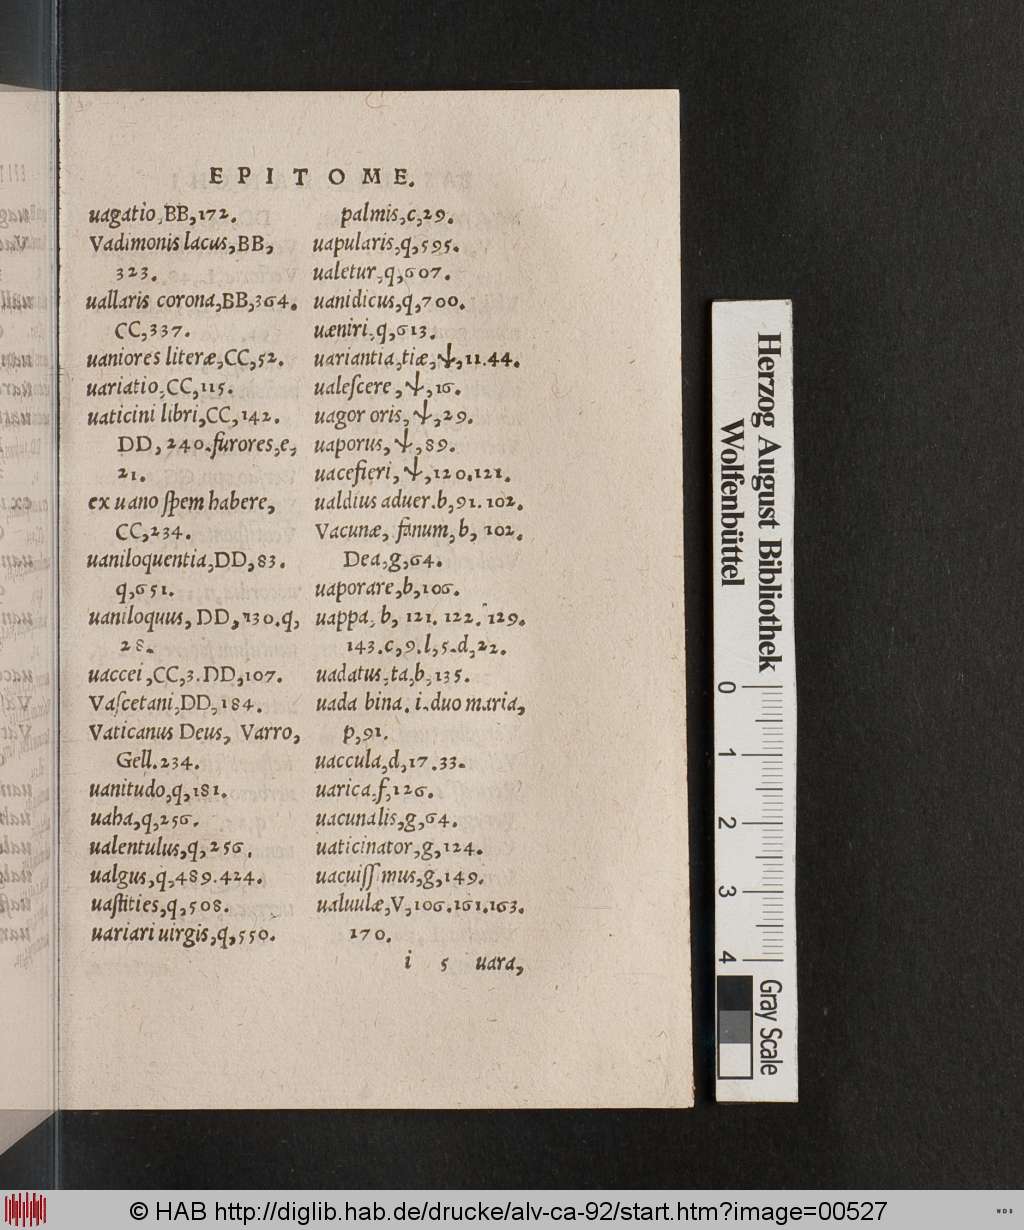 EPITOME.
uagatio, BB, 172.
Vadimonis lacus, BB,
323.
uallaris corona, BB, 364.
CC, 337.
uaniores literæ, CC, 52.
uariatio, CC, 115.
uaticini libri, CC, 142.
DD, 240. furores, e,
21.
ex uano ſpem habere,
CC, 234.
uaniloquentia, DD, 83.
q, 651.
uaniloquus, DD, 130. q,
28.
uaccei, CC, 3. DD, 107.
Vaſcetani, DD, 184.
Vaticanus Deus, Varro,
Gell. 234.
uanitudo, q, 181.
uaha, q, 256.
ualentulus, q, 256.
ualgus, q, 489. 424.
uaſtities, q, 508.
uariari uirgis, q, 550.
palmis, c, 29.
uapularis, q, 595.
ualetur, q, 607.
uanidicus, q, 700.
uæniri, q, 613.
uariantia, tiæ, Ψ, 11. 44.
ualeſcere, Ψ, 16.
uagor oris, Ψ, 29.
uaporus, Ψ, 89.
uacefieri, Ψ, 120. 121.
ualdius aduer. b, 91. 102.
Vacunæ, fanum, b, 102.
Dea, g, 64.
uaporare, b, 106.
uappa, b, 121. 122. 129.
143. c, 9. l, 5. d, 22.
uadatus, ta, b, 135.
uada bina. i. duo maria,
p, 91.
uaccula, d, 17. 33.
uarica, f, 126.
uacunalis, g, 64.
uaticinator, g, 124.
uacuiſſimus, g, 149.
ualuulæ, V, 106. 161. 163.
170.
i 5 uara,
Herzog August Bibliothek
Wolfenbüttel
0 1 2 3 4
Gray Scale
© HAB http://diglib.hab.de/drucke/alv-ca-92/start.htm?image=00527